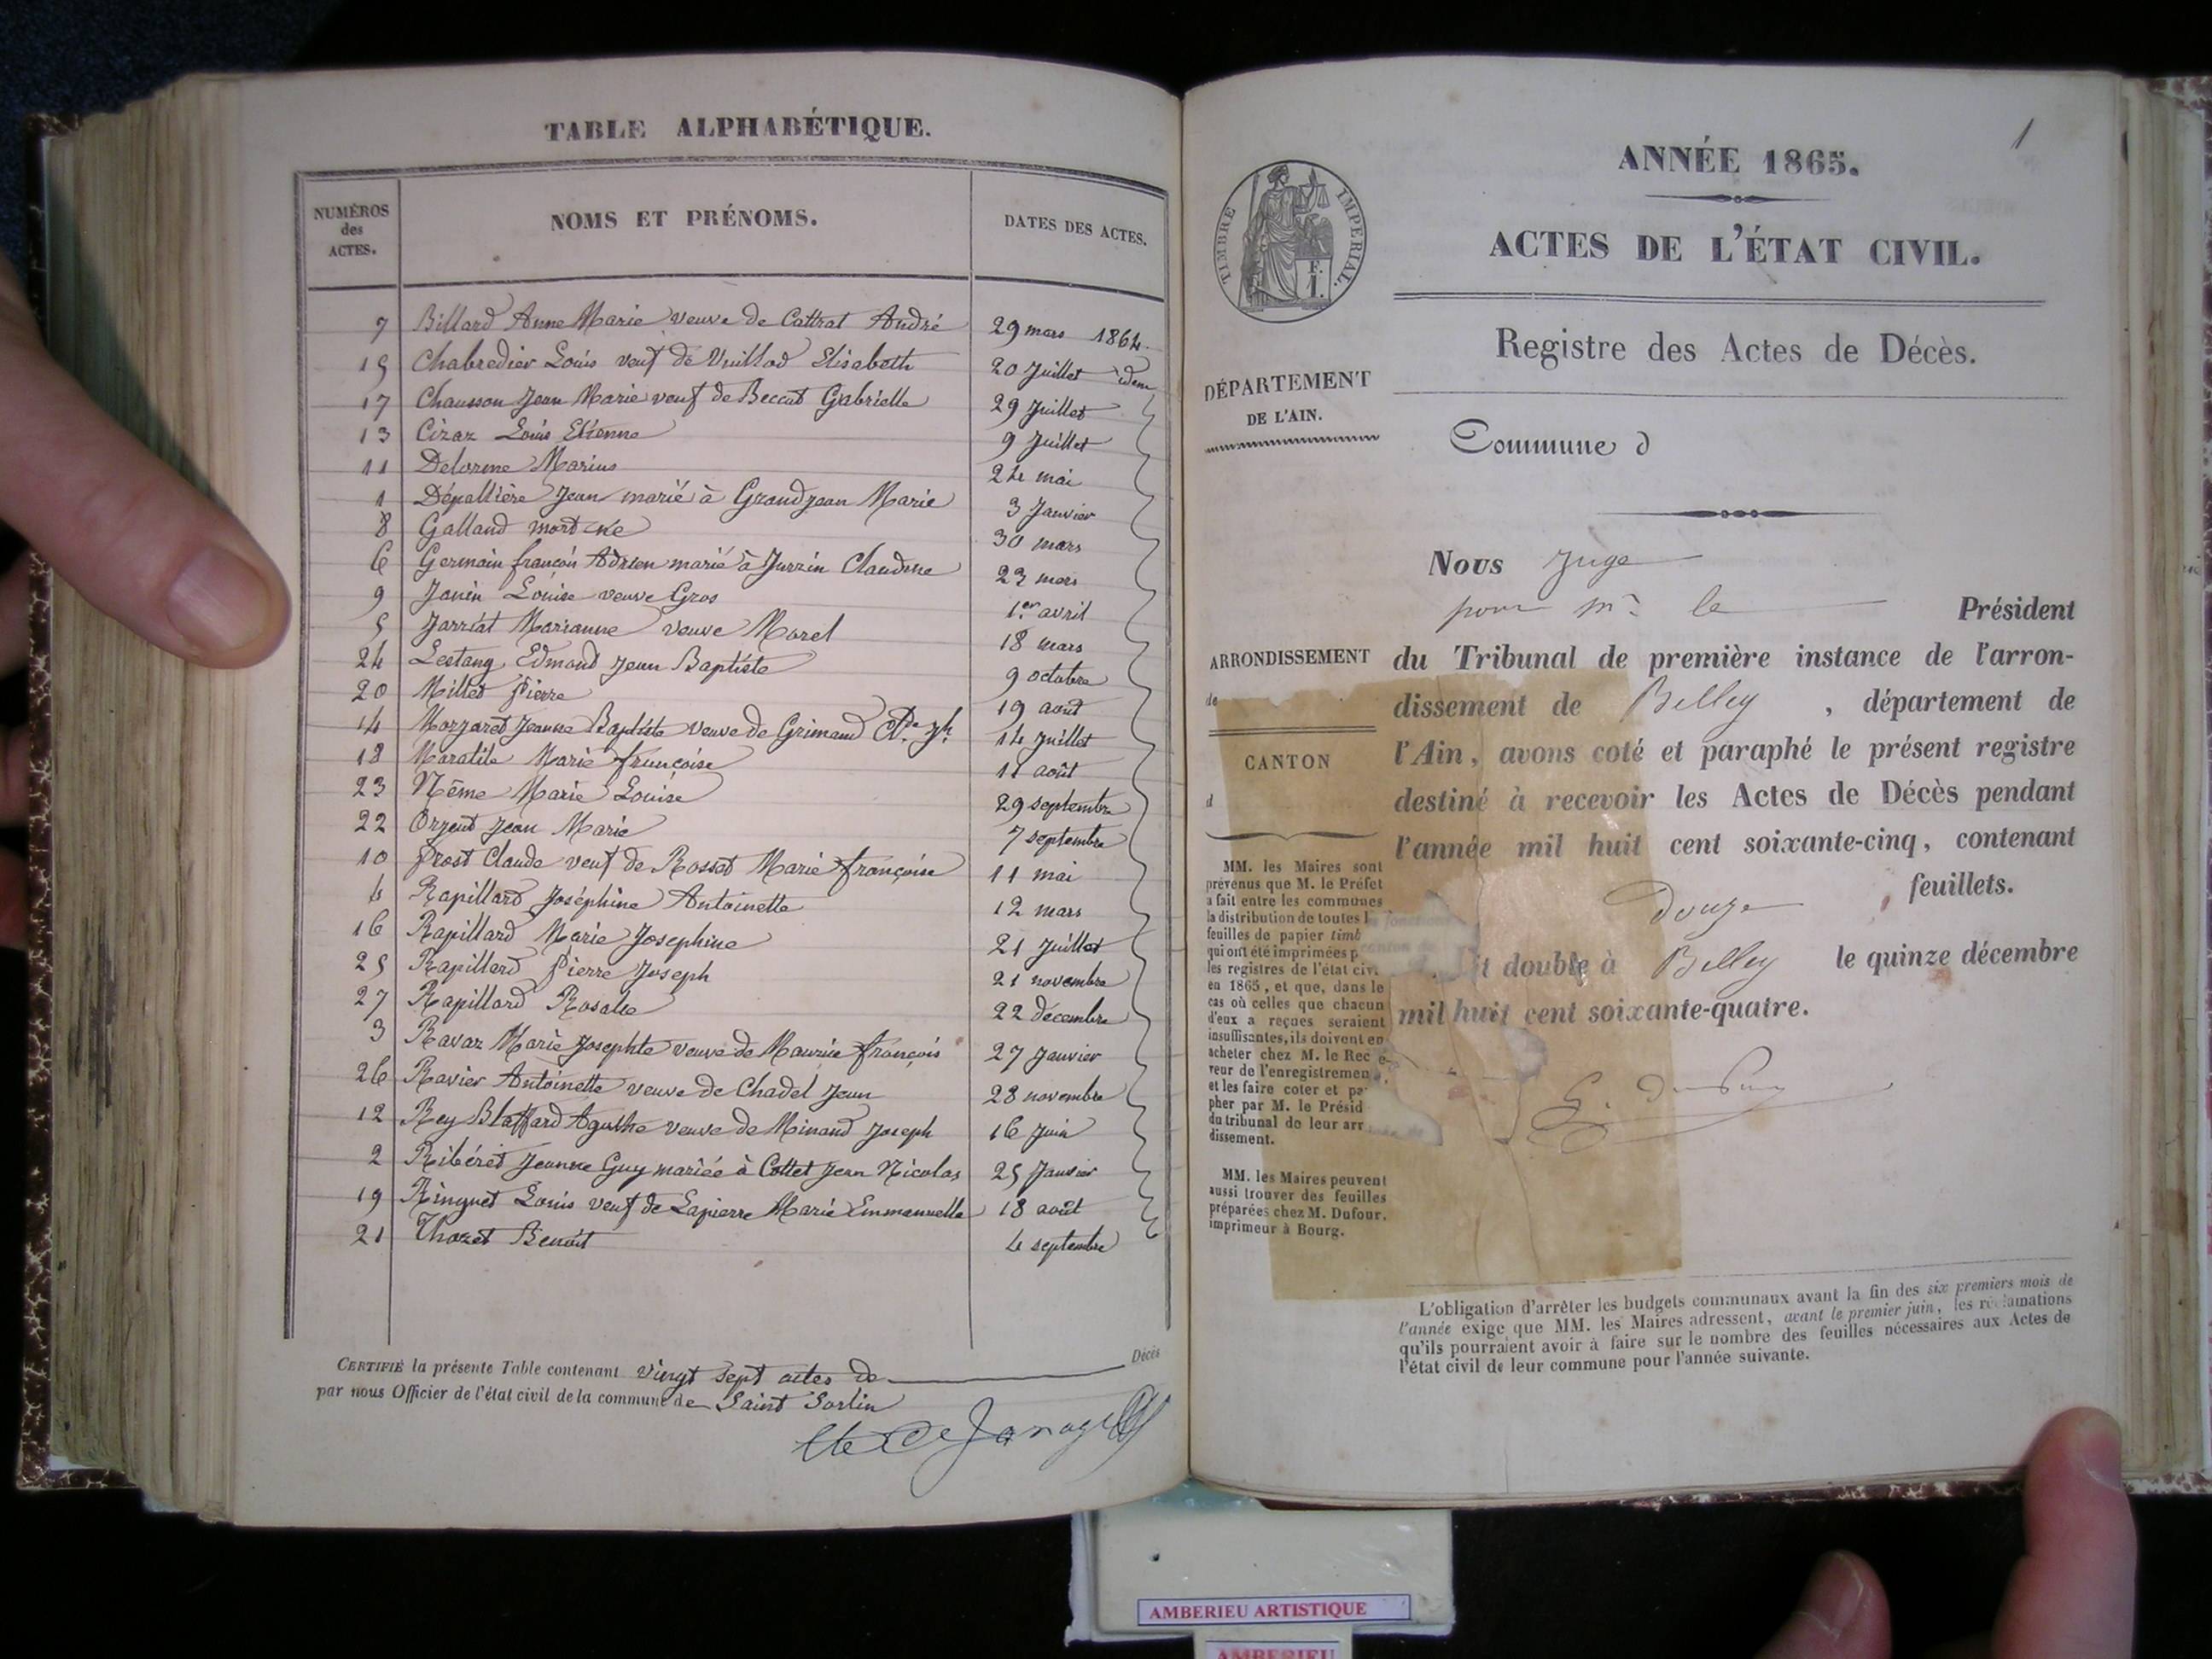 TABLE ALPHABÉTIQUE.
NUMÉROS des ACTES. NOMS ET PRÉNOMS. DATES DES ACTES.
7 Billard Anne Marie veuve de Cattrat André 29 mars 1864.
15 Chabredier Louis veuf de Vuillod Elisabeth 20 Juillet idem
17 Chausson Jean Marie veuf de Beccat Gabrielle 29 Juillet
13 Cizaz Louis Etienne 9 Juillet
11 Delorme Marius 24 mai
1 Dépallière Jean marié à Grandjean Marie 3 Janvier
8 Galland mort né 30 mars
6 Germain françois Adrien marié à Juvzin Claudine 23 mars
9 Janin Louise veuve Gros 1er avril
5 Jarriat Marianne veuve Morel 18 mars
24 Lestang Edmond Jean Baptiste 9 octobre
20 Millet pierre 19 août
14 Morgaret Jeanne Baptiste veuve de Grimand Cde Jh. 14 Juillet
18 Moratile Marie françoise 11 août
23 Nême Marie Louise 29 septembre
22 Orjeut Jean Marie 7 septembre
10 prost Claude veuf de Rossat Marie françoise 11 mai
4 Rapillard Joséphine Antoinette 12 mars
16 Rapillard Marie Josephine 21 Juillet
25 Rapillard pierre Joseph 21 novembre
27 Rapillard Rosalie 22 décembre
3 Ravaz Marie Josephte veuve de Maurice françois 27 Janvier
26 Ravier Antoinette veuve de Chadel Jean 28 novembre
12 Rey Blaffard Agathe veuve de Minand Joseph 16 Juin
2 Ribéret Jeanne Guy mariée à Cottet Jean Nicolas 25 Janvier
19 Ringuet Louis veuf de Lapierre Marie Emmanuelle 18 août
21 Thozet Benoit 4 septembre
CERTIFIÉ la présente Table contenant vingt sept actes de Décès
par nous Officier de l'état civil de la commune de Saint Sorlin
1
ANNÉE 1865.
ACTES DE L'ÉTAT CIVIL.
Registre des Actes de Décès.
TIMBRE IMPÉRIAL.
DÉPARTEMENT
DE L'AIN.
Commune d
ARRONDISSEMENT
de
CANTON
d
Nous Juge
pour mr le Président
du Tribunal de première instance de l'arron-
dissement de Belley, département de
l'Ain, avons coté et paraphé le présent registre
destiné à recevoir les Actes de Décès pendant
l'année mil huit cent soixante-cinq, contenant
douze feuillets.
it double à Belley le quinze décembre
mil huit cent soixante-quatre.
MM. les Maires sont
prévenus que M. le Préfet
a fait entre les communes
la distribution de toutes l
feuilles de papier timb
qui ont été imprimées p
les registres de l'état civ
en 1865, et que, dans le
cas où celles que chacun
d'eux a reçues seraient
insuffisantes, ils doivent en
acheter chez M. le Rece-
veur de l'enregistremen
et les faire coter et pa
pher par M. le Présid
du tribunal de leur arr
dissement.
MM. les Maires peuvent
aussi trouver des feuilles
préparées chez M. Dufour,
imprimeur à Bourg.
L'obligation d'arrêter les budgets communaux avant la fin des six premiers mois de
l'année exige que MM. les Maires adressent, avant le premier juin, les réclamations
qu'ils pourraient avoir à faire sur le nombre des feuilles nécessaires aux Actes de
l'état civil de leur commune pour l'année suivante.
AMBERIEU ARTISTIQUE
AMBERIEU